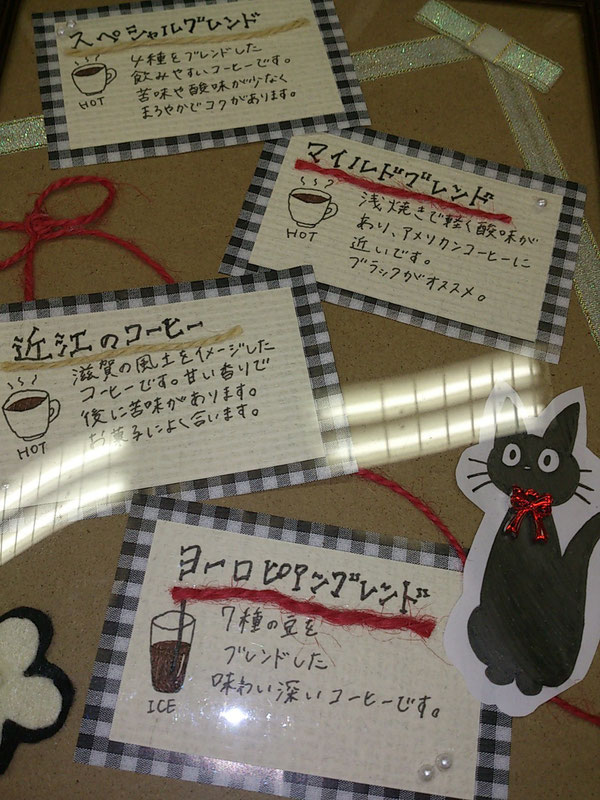 スペシャルブレンド
4種をブレンドした
飲みやすいコーヒーです。
苦味や酸味が少なく
まろやかでコクがあります。
HOT
マイルドブレンド
浅焼きで軽く酸味が
あり、アメリカンコーヒーに
近いです。
ブラックがオススメ。
HOT
近江のコーヒー
滋賀の風土をイメージした
コーヒーです。甘い香りで
後に苦味があります。
お菓子によく合います。
HOT
ヨーロピアンブレンド
7種の豆を
ブレンドした
味わい深いコーヒーです。
ICE